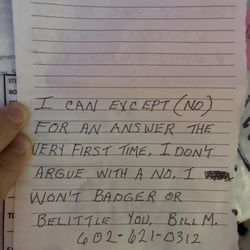 I CAN EXCEPT (NO)
FOR AN ANSWER THE
VERY FIRST TIME. I DON'T
ARGUE WITH A NO. I
WON'T BADGER OR
BELITTLE YOU, BILL M.
602-621-0312